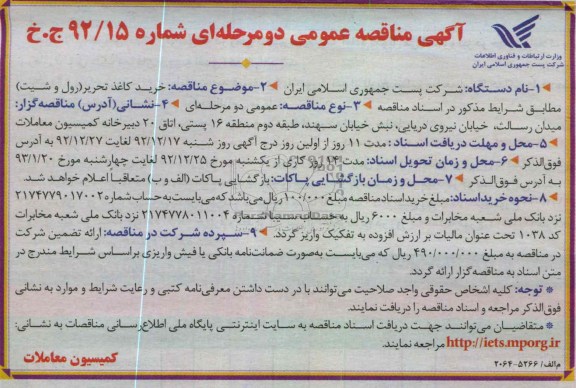 آگهی مناقصه عمومی دومرحله‌ای شماره ۹۲/۱۵ ج.خ
وزارت ارتباطات و فناوری اطلاعات
شرکت پست جمهوری اسلامی ایران
۱-نام دستگاه: شرکت پست جمهوری اسلامی ایران ۲-موضوع مناقصه: خرید کاغذ تحریر(رول و شیت)
مطابق شرایط مذکور در اسناد مناقصه ۳-نوع مناقصه: عمومی دو مرحله‌ای ۴-نشانی(آدرس) مناقصه‌گزار:
میدان رسالت، خیابان نیروی دریایی، نبش خیابان سهند، طبقه دوم منطقه ۱۶ پستی، اتاق ۲۰ دبیرخانه کمیسیون معاملات
۵-محل و مهلت دریافت اسناد : مدت ۱۱ روز از اولین روز درج آگهی روز شنبه ۹۲/۱۲/۱۷ لغایت ۹۲/۱۲/۲۷ به آدرس
فوق‌الذکر ۶-محل و زمان تحویل اسناد: مدت ۱۴ روز کاری از یکشنبه مورخ ۹۲/۱۲/۲۵ لغایت چهارشنبه مورخ ۹۳/۱/۲۰
به آدرس فوق‌الذکر ۷-محل و زمان بازگشایی پاکات: بازگشایی پاکات (الف و ب) متعاقباً اعلام خواهد شد.
۸-نحوه خرید اسناد: مبلغ خرید اسناد مناقصه مبلغ ۱۰۰/۰۰۰ ریال می‌باشد که می‌بایست به حساب شماره ۲۱۷۴۷۷۹۰۱۷۰۰۲
نزد بانک ملی شعبه مخابرات و مبلغ ۶۰۰۰ ریال به حساب سیبا شماره ۲۱۷۴۷۷۸۰۱۱۰۰۴ نزد بانک ملی شعبه مخابرات
کد ۱۰۳۸ تحت عنوان مالیات بر ارزش افزوده به تفکیک واریز گردد. ۹-سپرده شرکت در مناقصه: ارائه تضمین شرکت
در مناقصه به مبلغ ۴۹۰/۰۰۰/۰۰۰ ریال که می‌بایست به‌صورت ضمانت‌نامه بانکی یا فیش واریزی براساس شرایط مندرج در
متن اسناد به مناقصه‌گزار ارائه گردد.
* توجه: کلیه اشخاص حقوقی واجد صلاحیت می‌توانند با در دست داشتن معرفی‌نامه کتبی و رعایت شرایط و موارد به نشانی
فوق‌الذکر مراجعه و اسناد مناقصه را دریافت نمایند.
* متقاضیان می‌توانند جهت دریافت اسناد مناقصه به سایت اینترنتی پایگاه ملی اطلاع‌رسانی مناقصات به نشانی:
http://iets.mporg.ir مراجعه نمایند.
کمیسیون معاملات
م‌الف/ ۵۲۶۶-۲۰۶۴